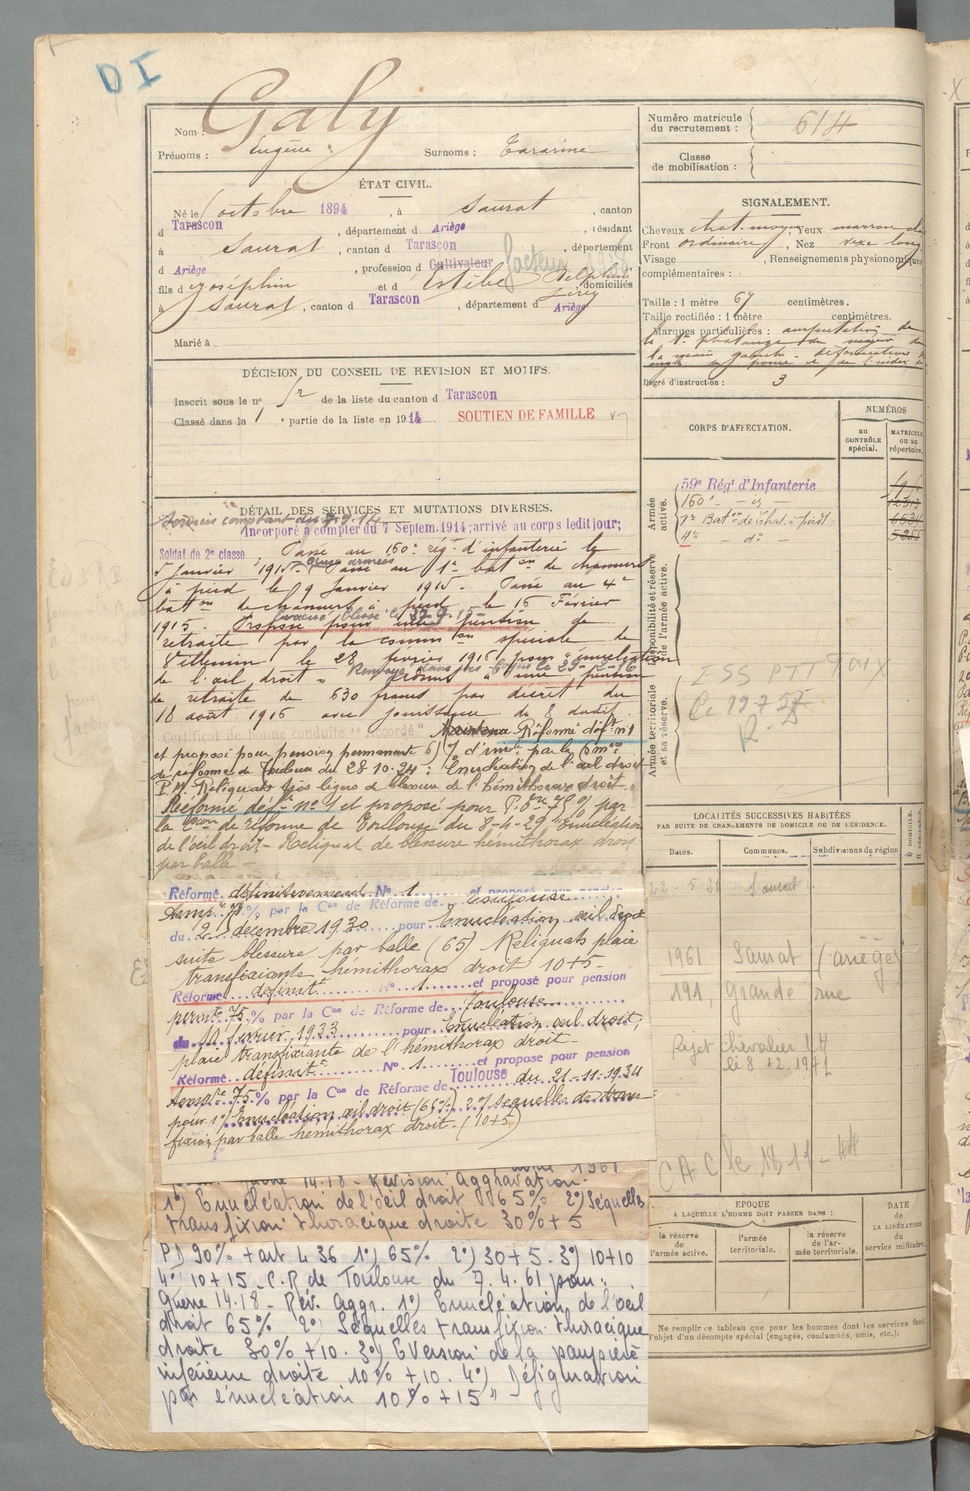 DI
Nom : Galy
Prénoms : Eugène Surnoms :
Numéro matricule du recrutement : 614
Classe de mobilisation :
ÉTAT CIVIL.
Né le octobre 1894, à Saurat, canton
d Tarascon, département d Ariège, résidant
à Saurat, canton d Tarascon, département
d Ariège, profession d Cultivateur facteur
fils d Joséphin et d Estèbe Delphine, domiciliés
à Saurat, canton d Tarascon, département d Ariège
Marié à
SIGNALEMENT.
Cheveux chat. moyen, Yeux marron
Front ordinaire, Nez
Visage, Renseignements physionomiques
complémentaires :
Taille : 1 mètre 67 centimètres.
Taille rectifiée : 1 mètre centimètres.
Marques particulières : amputation de
la main gauche
Degré d'instruction : 3
DÉCISION DU CONSEIL DE REVISION ET MOTIFS.
Inscrit sous le n° de la liste du canton d Tarascon
Classé dans la 1 e partie de la liste en 1914. SOUTIEN DE FAMILLE
CORPS D'AFFECTATION.
NUMÉROS
AU CONTRÔLE spécial.
MATRICULE ou au répertoire.
Armée active.
59e Régt d'Infanterie
160e - d° -
1er Baton de Chat. à pied
4e - d° -
Disponibilité et réserve de l'armée active.
ESS PTT
Armée territoriale et sa réserve.
DÉTAIL DES SERVICES ET MUTATIONS DIVERSES.
Services comptant du 7.9.14
Incorporé à compter du 7 Septem. 1914; arrivé au corps ledit jour;
Soldat de 2e classe. Passé au 160e régt d'infanterie le
5 janvier 1915. Passé au 1er baton de chasseurs
à pied le 9 janvier 1915. Passé au 4e
baton de chasseurs à pied le 15 Février
1915. Proposé pour une pension de
retraite par la commion spéciale de
Villemin le 28 février 1916 pour "énucléation
de l'œil droit". une pension
de retraite de 630 francs par décret du
18 août 1916 avec jouissance du 8 dudit
Certificat de bonne conduite "accordé" Réformé déft n°1
et proposé pour pension permanente 65% d'invté par la
de réforme de Toulouse du 28.10.24 : Enucléation de l'œil droit
P.M Reliquats très légers de blessure de l'hémithorax droit.
Réformé déft n° 1 et proposé pour P. 75% par
la Con de réforme de Toulouse du 8-4-29 "Enucléation
de l'œil droit - Reliquat de blessure hémithorax droit
par balle -
Réformé définitivement N° 1 et proposé pour pension
temp. 75% par la Con de Réforme de Toulouse
du 2 décembre 1930 pour Enucléation œil droit
suite blessure par balle (65) Reliquats plaie
transfixiante hémithorax droit 10+5-
Réformé définitt N° 1 et proposé pour pension
permte 75% par la Con de Réforme de Toulouse
du février 1933 pour Enucléation œil droit,
plaie transfixiante de l'hémithorax droit-
Réformé définitt N° 1 et proposé pour pension
75% par la Con de Réforme de Toulouse du 21-11-1934
pour 1°) Enucléation œil droit (65%) 2°) séquelles de trans-
fixion par balle hémithorax droit. (10+5)
14-18 - Révision Aggravation.
1°) Enucléation de l'oeil droit 65% 2°) Séquelles
transfixion thoracique droite 30% + 5
PD 90% + art L 36 1°) 65% 2°) 30+5. 3°) 10+10
4°) 10+15. C.R de Toulouse du 7.4.61 pour :
Guerre 14.18 - Rév. Aggr. 1°) Enucléation de l'oeil
droit 65% 2°) Séquelles transfixion thoracique
droite 30% + 10. 3°) Eversion de la paupière
inférieure droite 10% + 10. 4°) Défiguration
par énucléation 10% + 15 "
LOCALITÉS SUCCESSIVES HABITÉES
PAR SUITE DE CHANGEMENTS DE DOMICILE OU DE RÉSIDENCE.
Dates. Communes. Subdivisions de région
D. DOMICILE. R. RÉSIDENCE.
Saurat
1961 Saurat (ariège)
191, Grande rue
Rejet chevalier LH
le 8.12.1971
EPOQUE
A LAQUELLE L'HOMME DOIT PASSER DANS :
la réserve de l'armée active.
l'armée territoriale.
la réserve de l'armée territoriale.
DATE de LA LIBÉRATION du service militaire.
Ne remplir ce tableau que pour les hommes dont les services font
l'objet d'un décompte spécial (engagés, condamnés, omis, etc.).